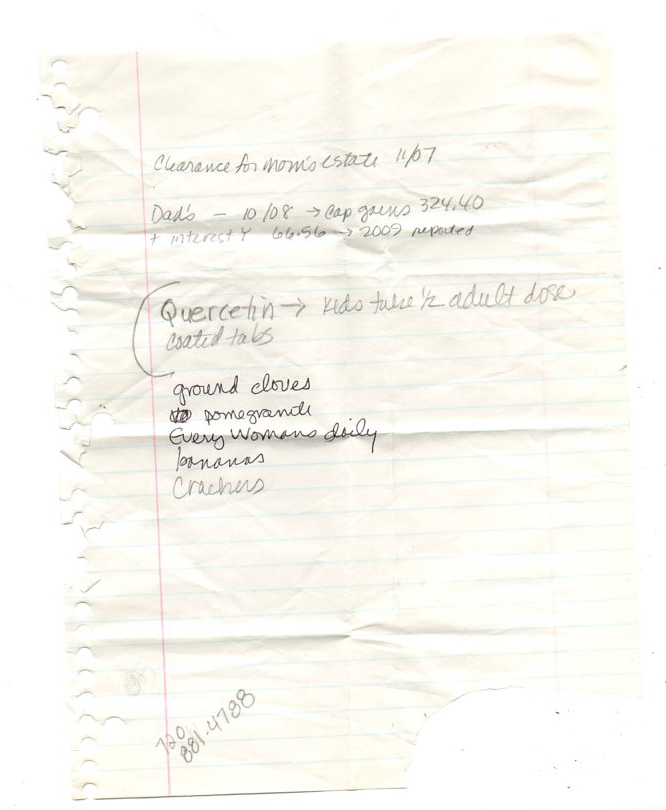 Clearance for Mom's estate 11/07
Dad's — 10/08 → Cap gains 324.40
+ interest 66.56 → 2009 reported
Quercetin → Kids take 1/2 adult dose
coated tabs
ground cloves
pomegranite
Every Womans daily
bananas
Crackers
720
881-4788